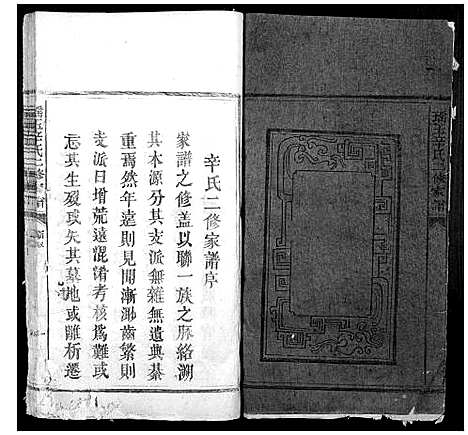 辛氏二修家譜序
家譜之修蓋以聯一族之脈絡溯
其本源分其支派無雜無遺典綦
重焉然年遠則見聞漸渺齒繁則
支派日增荒遠混淆考核爲難或
忘其生歿或失其墓地或離析遷
辛氏二修家譜